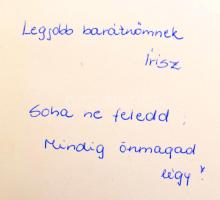 Legjobb barátnőmnek
Írisz
Soha ne feledd:
Mindig önmagad
légy!